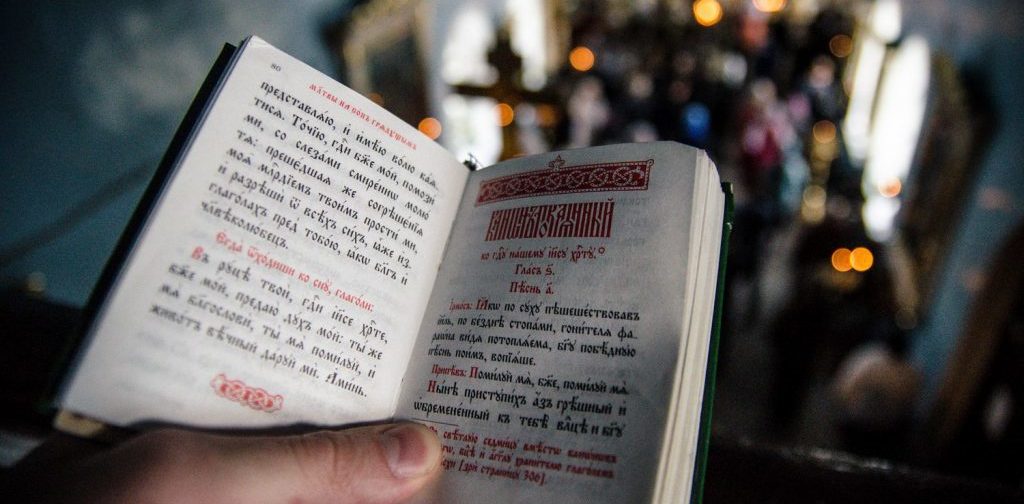 80
МЛ҃ТВЫ НА СОНЪ ГРѦДꙊЩЫМЪ
представлѧ́ю, и҆ и҆мѣ́ю во́лю ка́ѧ-
тисѧ. То́чїю, гдⷭ҇и бж҃е мо́й, помози́
ми, со слеза́ми смире́ннѡ молю́
тѧ: преше́дшаѧ же согрѣшє́нїѧ
моѧ̑ млⷭ҇рдїемъ твои́мъ прости́ ми,
и҆ разрѣши́ ѿ всѣ́хъ си́хъ, ꙗ҆̀же и҆з-
глаго́лахъ пред̾ тобо́ю, ꙗ҆́кѡ бл҃гъ и҆
чл҃вѣколю́бецъ.
Е҆гда̀ ѿхо́диши ко снꙋ̀, глаго́ли:
Въ рꙋ́цѣ твоѝ, гдⷭ҇и і҆и҃се хрⷭ҇тѐ,
бж҃е мо́й, предаю̀ дꙋ́хъ мо́й: ты́ же
мѧ̀ бл҃гословѝ, ты̀ мѧ̀ поми́лꙋй, и҆
живо́тъ вѣ́чный да́рꙋй мѝ. А҆ми́нь.
КАНѠ́НЪ ПОКАѦ́ННЫЙ
ко гдⷭ҇ꙋ на́шемꙋ і҆и҃сꙋ хрⷭ҇тꙋ̀.
Гла́съ ѕ҃.
Пѣ́снь а҃.
І҆рмо́съ: Ꙗ҆́кѡ по сꙋ́хꙋ пѣшеше́ствовавъ
і҆и҃ль, по бе́зднѣ стопа́ми, гони́телѧ фа-
раѡ́на ви́дѧ потоплѧ́ема, бг҃ꙋ побѣ́днꙋю
пѣ́снь пои́мъ, вопїѧ́ше.
Припѣ́въ: Поми́лꙋй мѧ̀, бж҃е, поми́лꙋй мѧ̀.
Нн҃ѣ пристꙋпи́хъ а҆́зъ грѣ́шный и҆
ѡ҆бремене́нный къ тебѣ̀ влⷣцѣ и҆ бг҃ꙋ
свѣ́тлꙋю седми́цꙋ вмѣ́стѡ канѡ́нѡвъ
бцⷣѣ и҆ а҆́гг҃лꙋ храни́телю глаго́лемъ
[зрѝ страни́цꙋ 306].